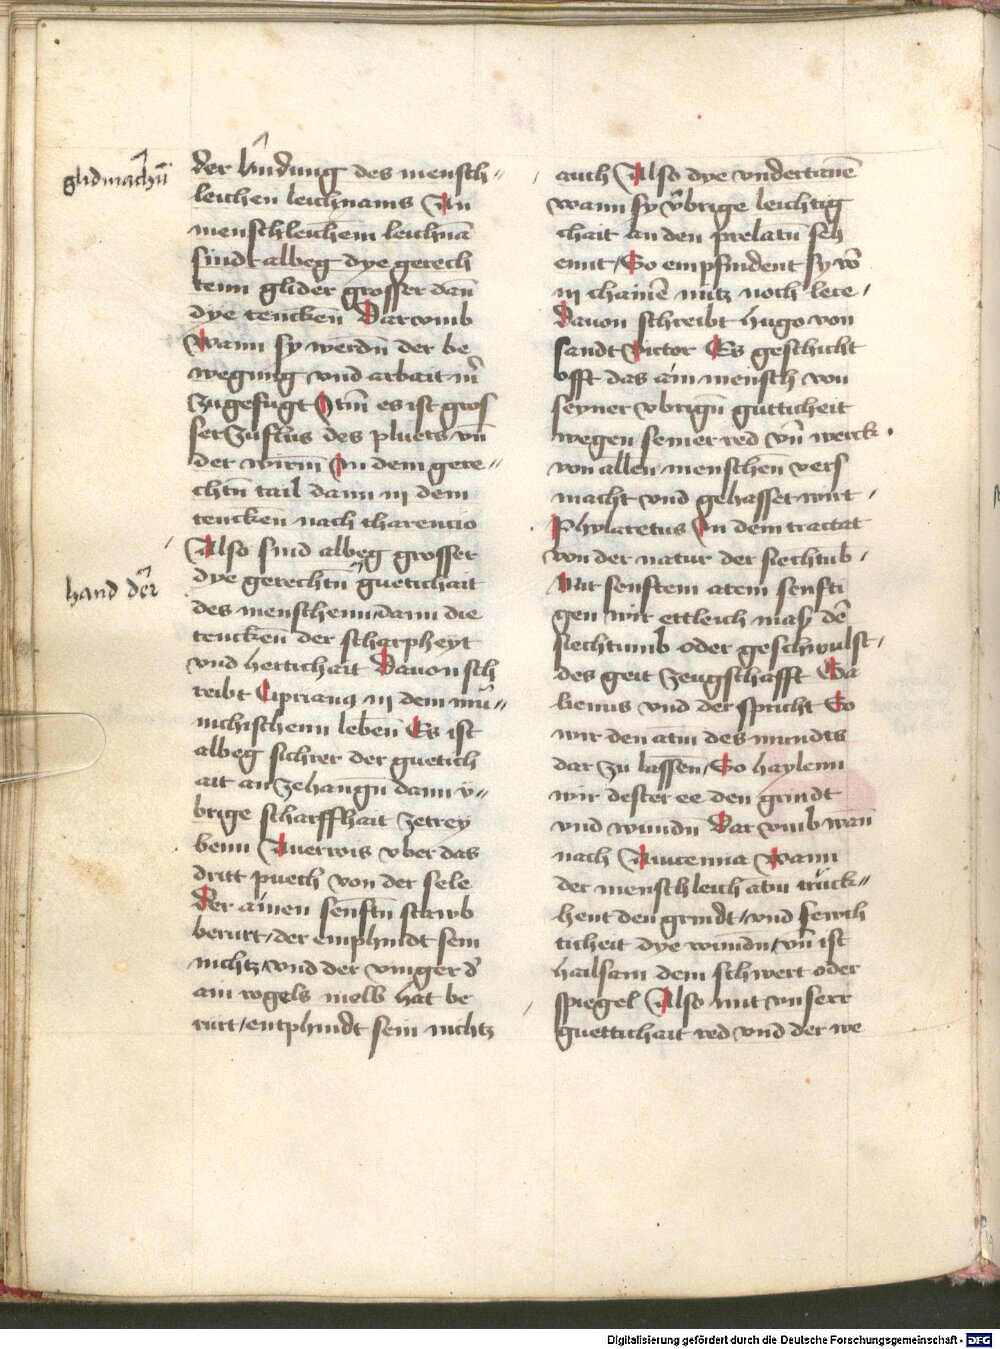 glidmachū
hand der̄
der kündung des mensch⸗
leichen leichnams An
menschleichem leichnā
sindt albeg dye gerech
tenn glider grosser dan̄
dye tencken Darwmb
Wann sy werdn̄ der be
wegung vnd arbait m̄
zugefugt Itm̄ es ist gros
ser zuflus des pluets vn̄
der wirm̄ In dem gere⸗
chtn̄ tail dann in dem
tencken nach tharencio
Also sind albeg grosser
dye gerechtn̄ guetichait
des menschenn dann die
tencken der scharpheyt
vnd herttichait Dauon sch
reibt Ciprianus in dem mü⸗
nichischenn leben Es ist
albeg sichrer der guetich
ait an zehangn̄ dann v⸗
brige scharffhait zetrey
benn Auerrois vber das
dritt puech von der sele
Der ainen senftn̄ stawb
berurt/der emphindt sein
nichtz vnd der vinger d'
am vogels melb hat be
rurt/entphindt sein nichtz
auch Also dye vndertanē
wann sy vbrige leichtig
chait an den prelatn̄ seh
ennt/So empfindent sy vō
in chainē nutz noch lere/
Dauon schreibt Hugo von
sandt Victor Es geschicht
offt das ain mensch von
seyner vbrign̄ gutticheit
wegen seiner red vn̄ werck
von allen menschen vers
macht vnd gehasset wirt/
Phylaretus In dem tractat
von der natur der siechtub/
Mit senftem atem senfti
gen wir ettleich mass dē
siechtumb oder geschwulst/
des geit zeugschafft Ga
lienus vnd der spricht So
wir den atm des mundts
dar zu lassen/So haylenn
wir dester ee den grindt
vnd wundn̄ Dar vmb wan̄
nach Auicenna Wann
der menschleich atm trück⸗
hent den grindt/vnd fewch
ticheit dye wundn̄/vn̄ ist
hailsam dem schwert oder
spiegel Also mit vnserr
guettichait red vnd der we
Digitalisierung gefördert durch die Deutsche Forschungsgemeinschaft - DFG